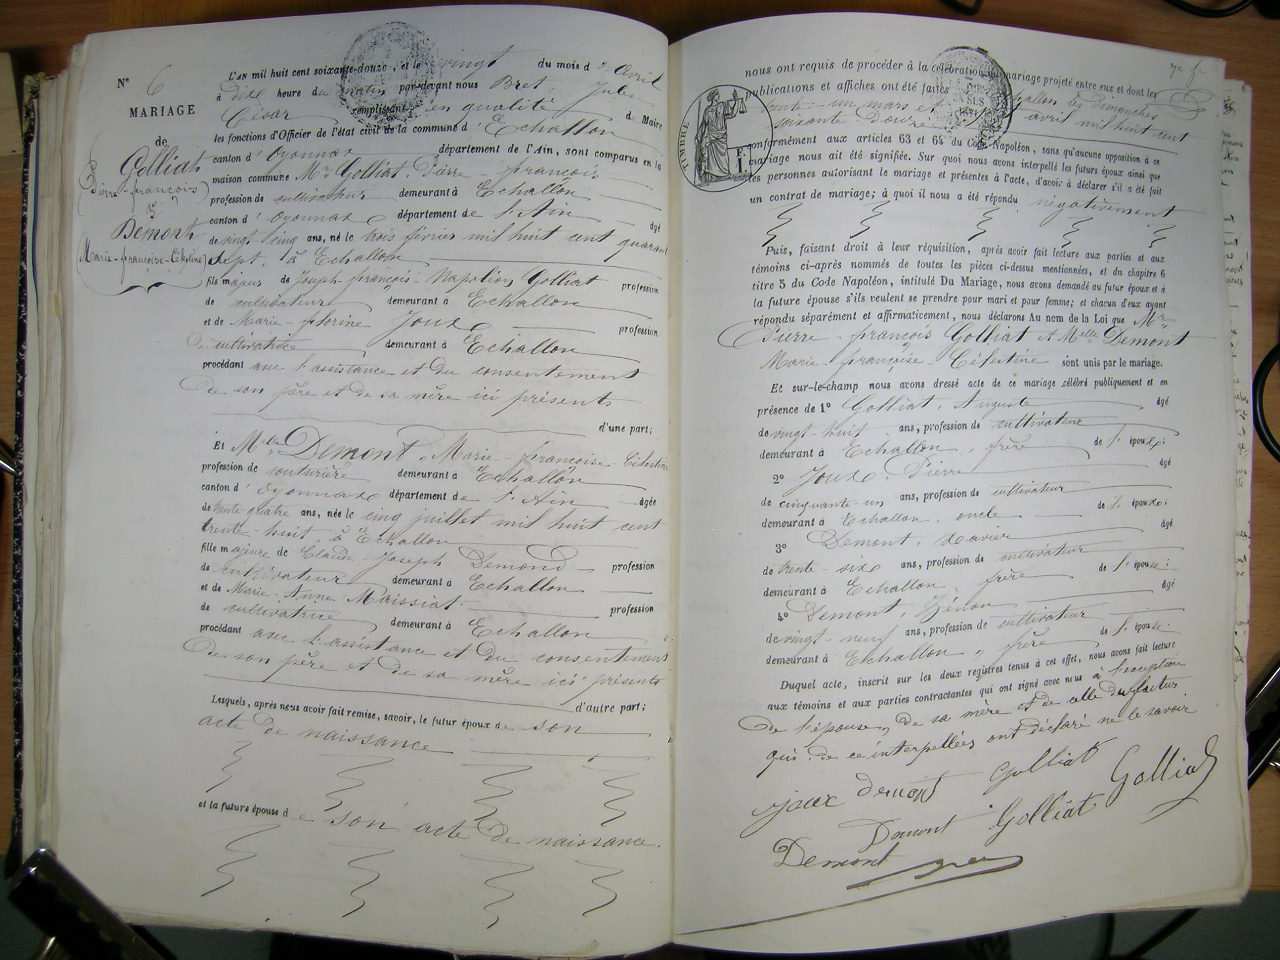 N° 6
MARIAGE
de
Golliat
Pierre-françois
&
Demont
Marie-françoise-Célestine
L'AN mil huit cent soixante-douze, et le vingt du mois d'Avril
à dix heure du matin par-devant nous Bret, Jules
César remplissant en qualité de Maire
les fonctions d'Officier de l'état civil de la commune d'Echallon
canton d'Oyonnax département de l'Ain, sont comparus en la
maison commune Mr Golliat, Pierre-françois
profession de cultivateur demeurant à Echallon
canton d'Oyonnax département de l'Ain âgé
de vingt cinq ans, né le trois février mil huit cent quarante
sept, à Echallon
fils majeur de Joseph-françois-Napoléon Golliat profession
de cultivateur demeurant à Echallon
et de Marie-florine Joux profession
de cultivatrice demeurant à Echallon
procédant avec l'assistance et du consentement
de son père et de sa mère ici présents
d'une part;
Et Mlle Demont, Marie-françoise-Célestine
profession de couturière demeurant à Echallon
canton d'Oyonnax département de l'Ain âgée
de trente quatre ans, née le cinq juillet mil huit cent
trente-huit, à Echallon
fille majeure de Claude Joseph Demond profession
de cultivateur demeurant à Echallon
et de Marie-Anne Maissiat profession
de cultivatrice demeurant à Echallon
procédant avec l'assistance et du consentement
de son père et de sa mère ici présents
d'autre part;
Lesquels, après nous avoir fait remise, savoir, le futur époux de son
acte de naissance
et la future épouse de son acte de naissance.
nous ont requis de procéder à la célébration du mariage projeté entre eux et dont les
publications et affiches ont été faites Echallon les dimanches
trente-un mars et avril mil huit cent
soixante Douze
conformément aux articles 63 et 64 du Code Napoléon, sans qu'aucune opposition à ce
mariage nous ait été signifiée. Sur quoi nous avons interpellé les futurs époux ainsi que
les personnes autorisant le mariage et présentes à l'acte, d'avoir à déclarer s'il a été fait
un contrat de mariage; à quoi il nous a été répondu négativement
TIMBRE
1 F.
Puis, faisant droit à leur réquisition, après avoir fait lecture aux parties et aux
témoins ci-après nommés de toutes les pièces ci-dessus mentionnées, et du chapitre 6
titre 5 du Code Napoléon, intitulé Du Mariage, nous avons demandé au futur époux et à
la future épouse s'ils veulent se prendre pour mari et pour femme; et chacun d'eux ayant
répondu séparément et affirmativement, nous déclarons Au nom de la Loi que Mr
Pierre-françois Golliat et Mlle Demont
Marie-françoise-Célestine sont unis par le mariage.
Et sur-le-champ nous avons dressé acte de ce mariage célébré publiquement et en
présence de 1° Golliat, Auguste âgé
de vingt-huit ans, profession de cultivateur
demeurant à Echallon, frère de l'époux;
2° Joux, Pierre âgé
de cinquante-un ans, profession de cultivateur
demeurant à Echallon, oncle de l'époux;
3° Demont, Xavier âgé
de trente-six ans, profession de cultivateur
demeurant à Echallon frère de l'épouse;
4° Demont, Zénon âgé
de vingt-neuf ans, profession de cultivateur
demeurant à Echallon, frère de l'épouse.
Duquel acte, inscrit sur les deux registres tenus à cet effet, nous avons fait lecture
aux témoins et aux parties contractantes qui ont signé avec nous à l'exception
de l'épouse, de sa mère et de celle du futur
qui de ce interpellées ont déclaré ne le savoir
Joux Demont Golliat Golliat
Demont Golliat
Demont